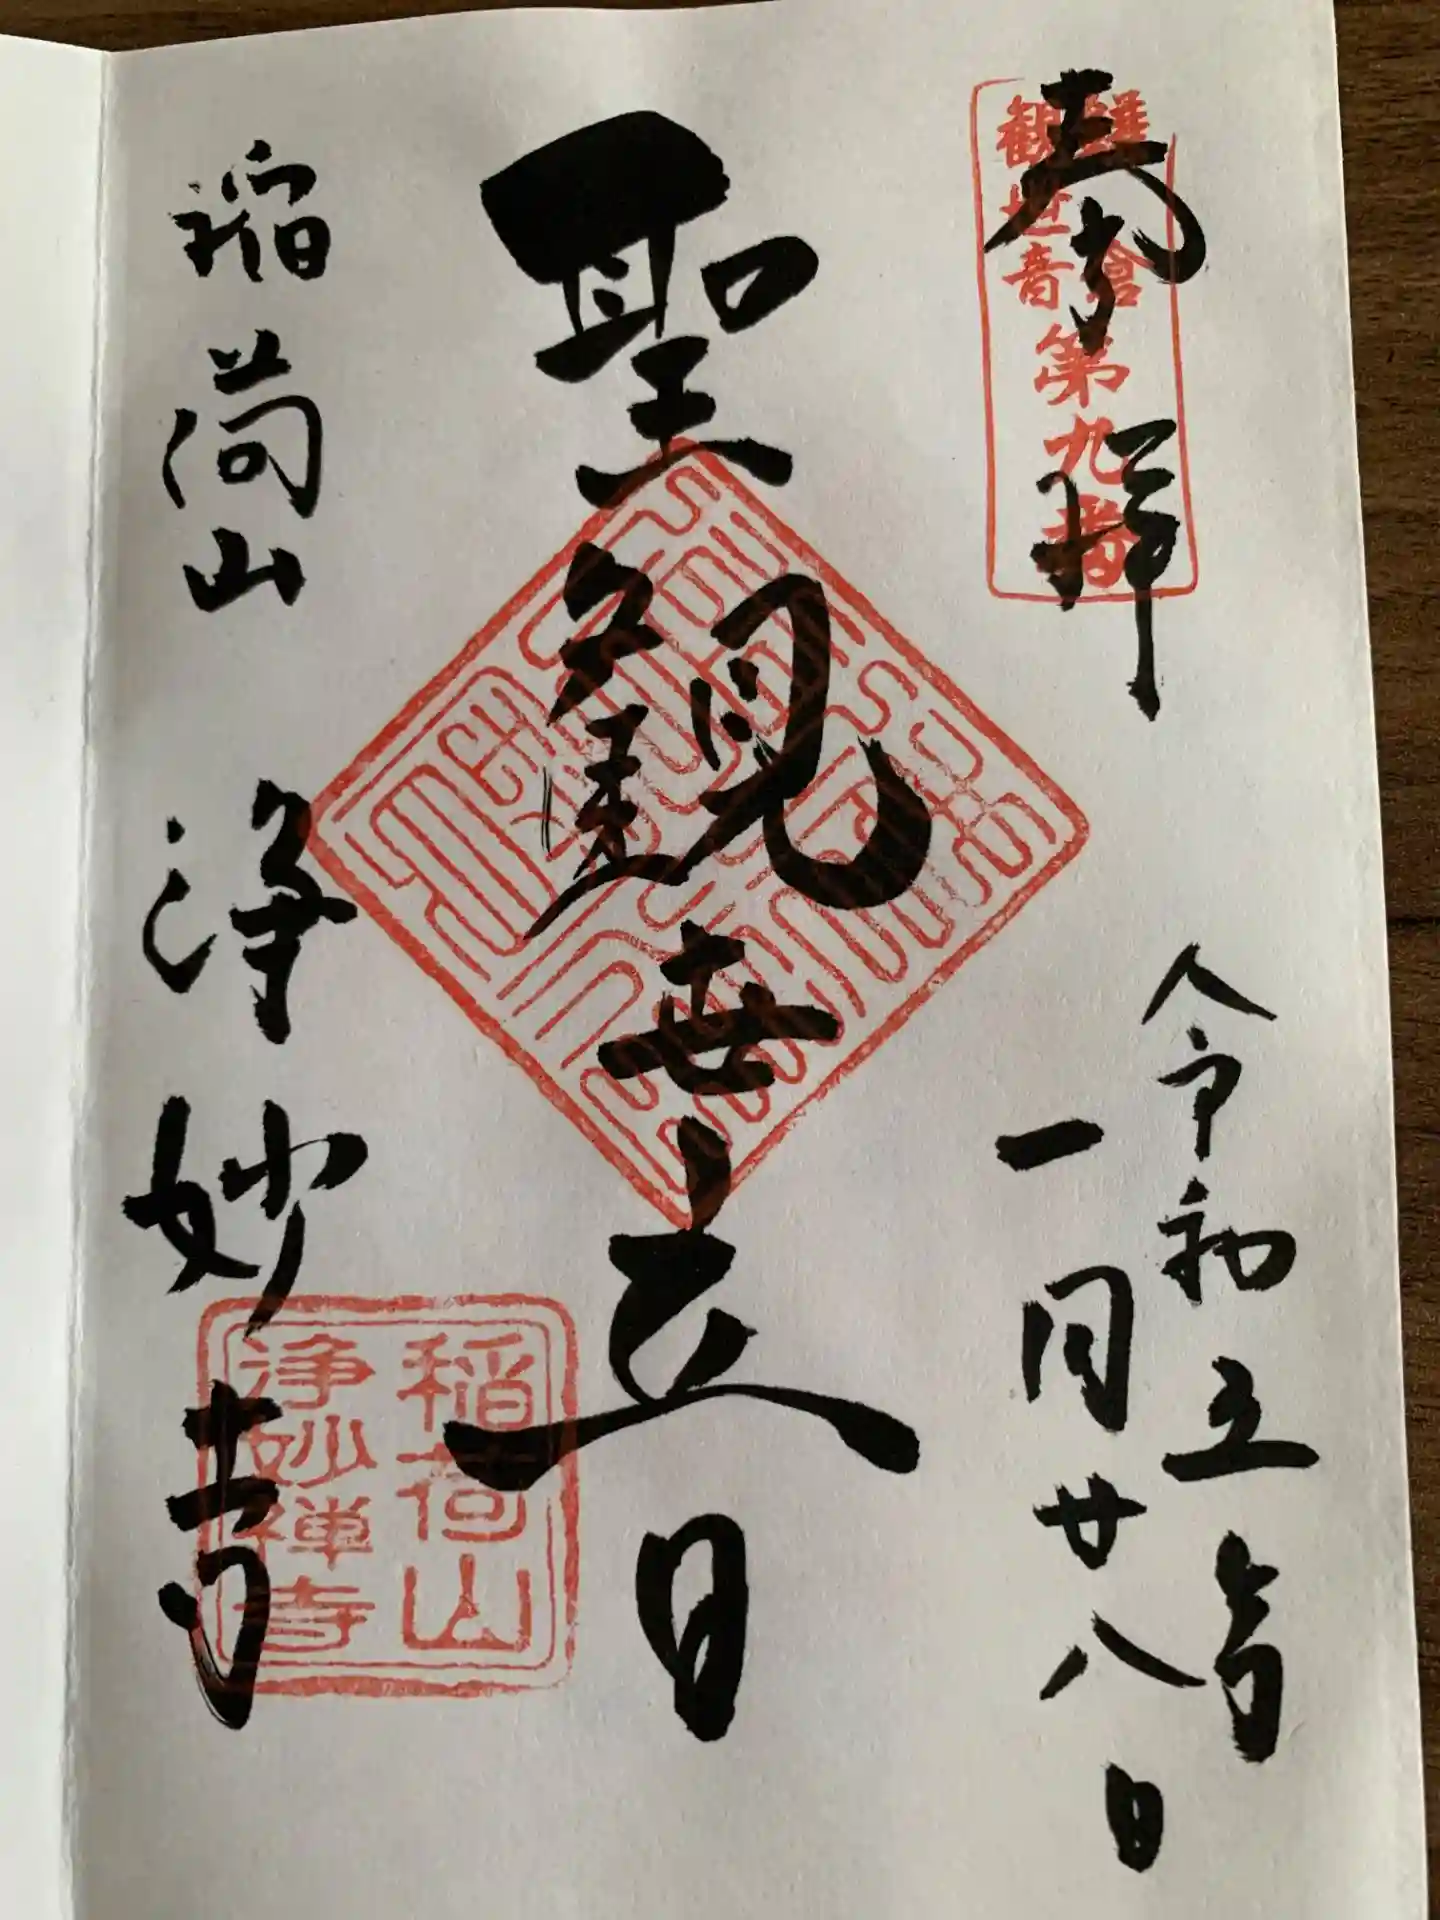 奉拝
鎌倉
観世音
第九番
令和五年
一月廿八日
聖観世音
稲荷山 浄妙寺
稲荷山
浄妙禅寺